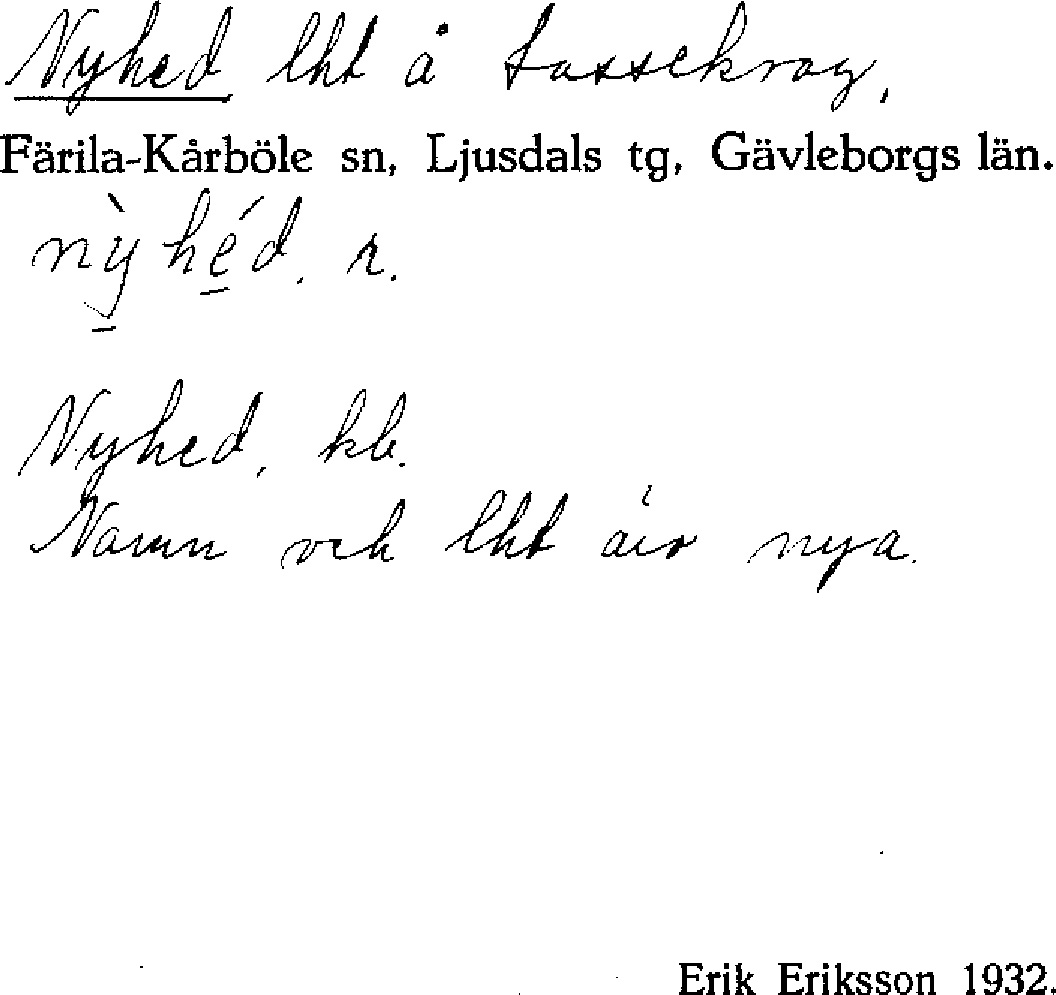 Nyhed lht å Fassekrog,
Färila-Kårböle sn, Ljusdals tg, Gävleborgs län.
nỳhéd. r.
Nyhed, kb.
Namn och lht är nya.
Erik Eriksson 1932.